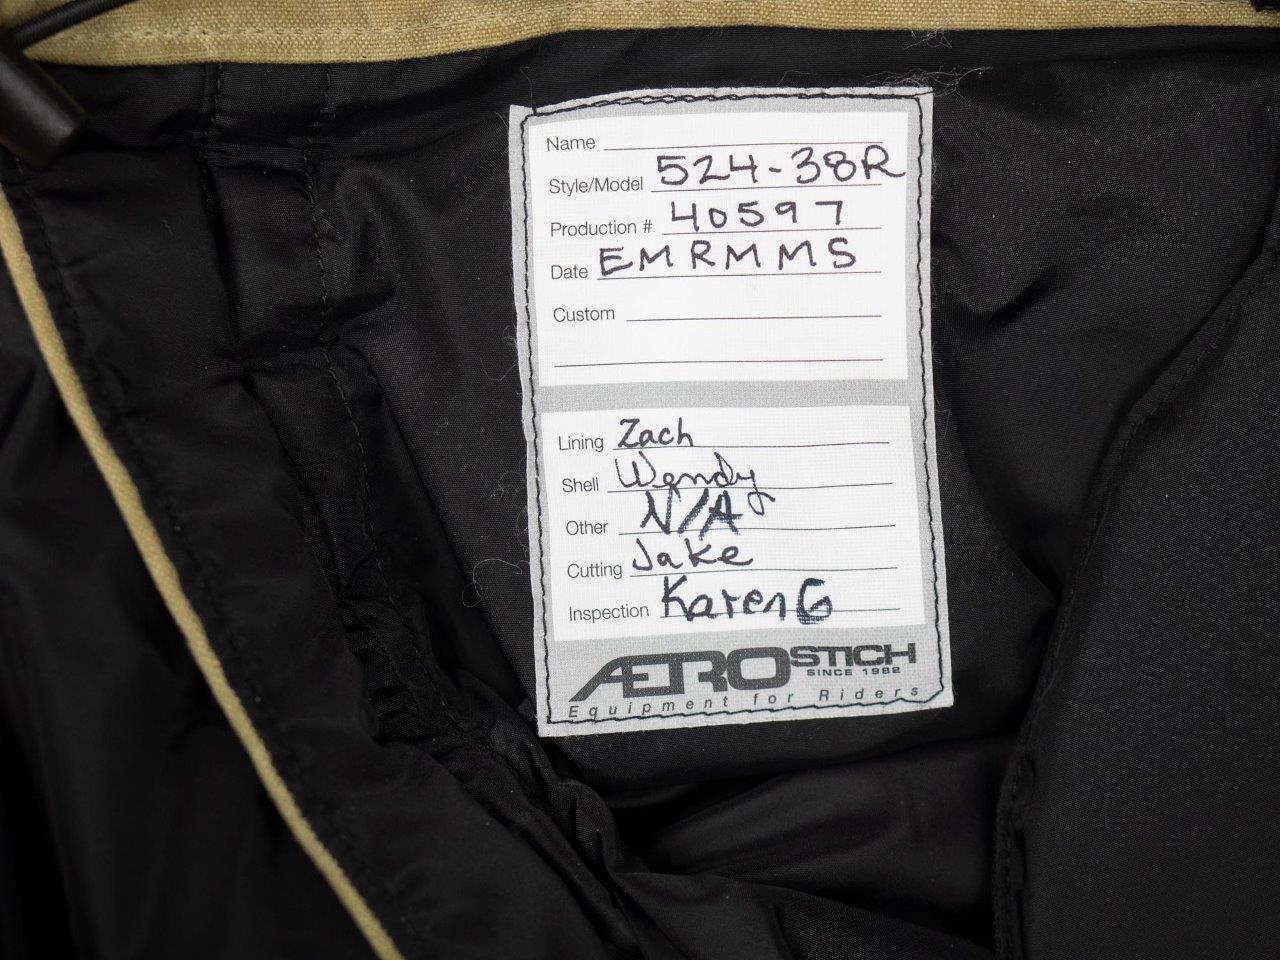 Name
Style/Model 524-38R
Production # 40597
Date EMRMMS
Custom
Lining Zach
Shell Wendy
Other N/A
Cutting Jake
Inspection Karen G
AEROSTICH
SINCE 1982
Equipment for Riders